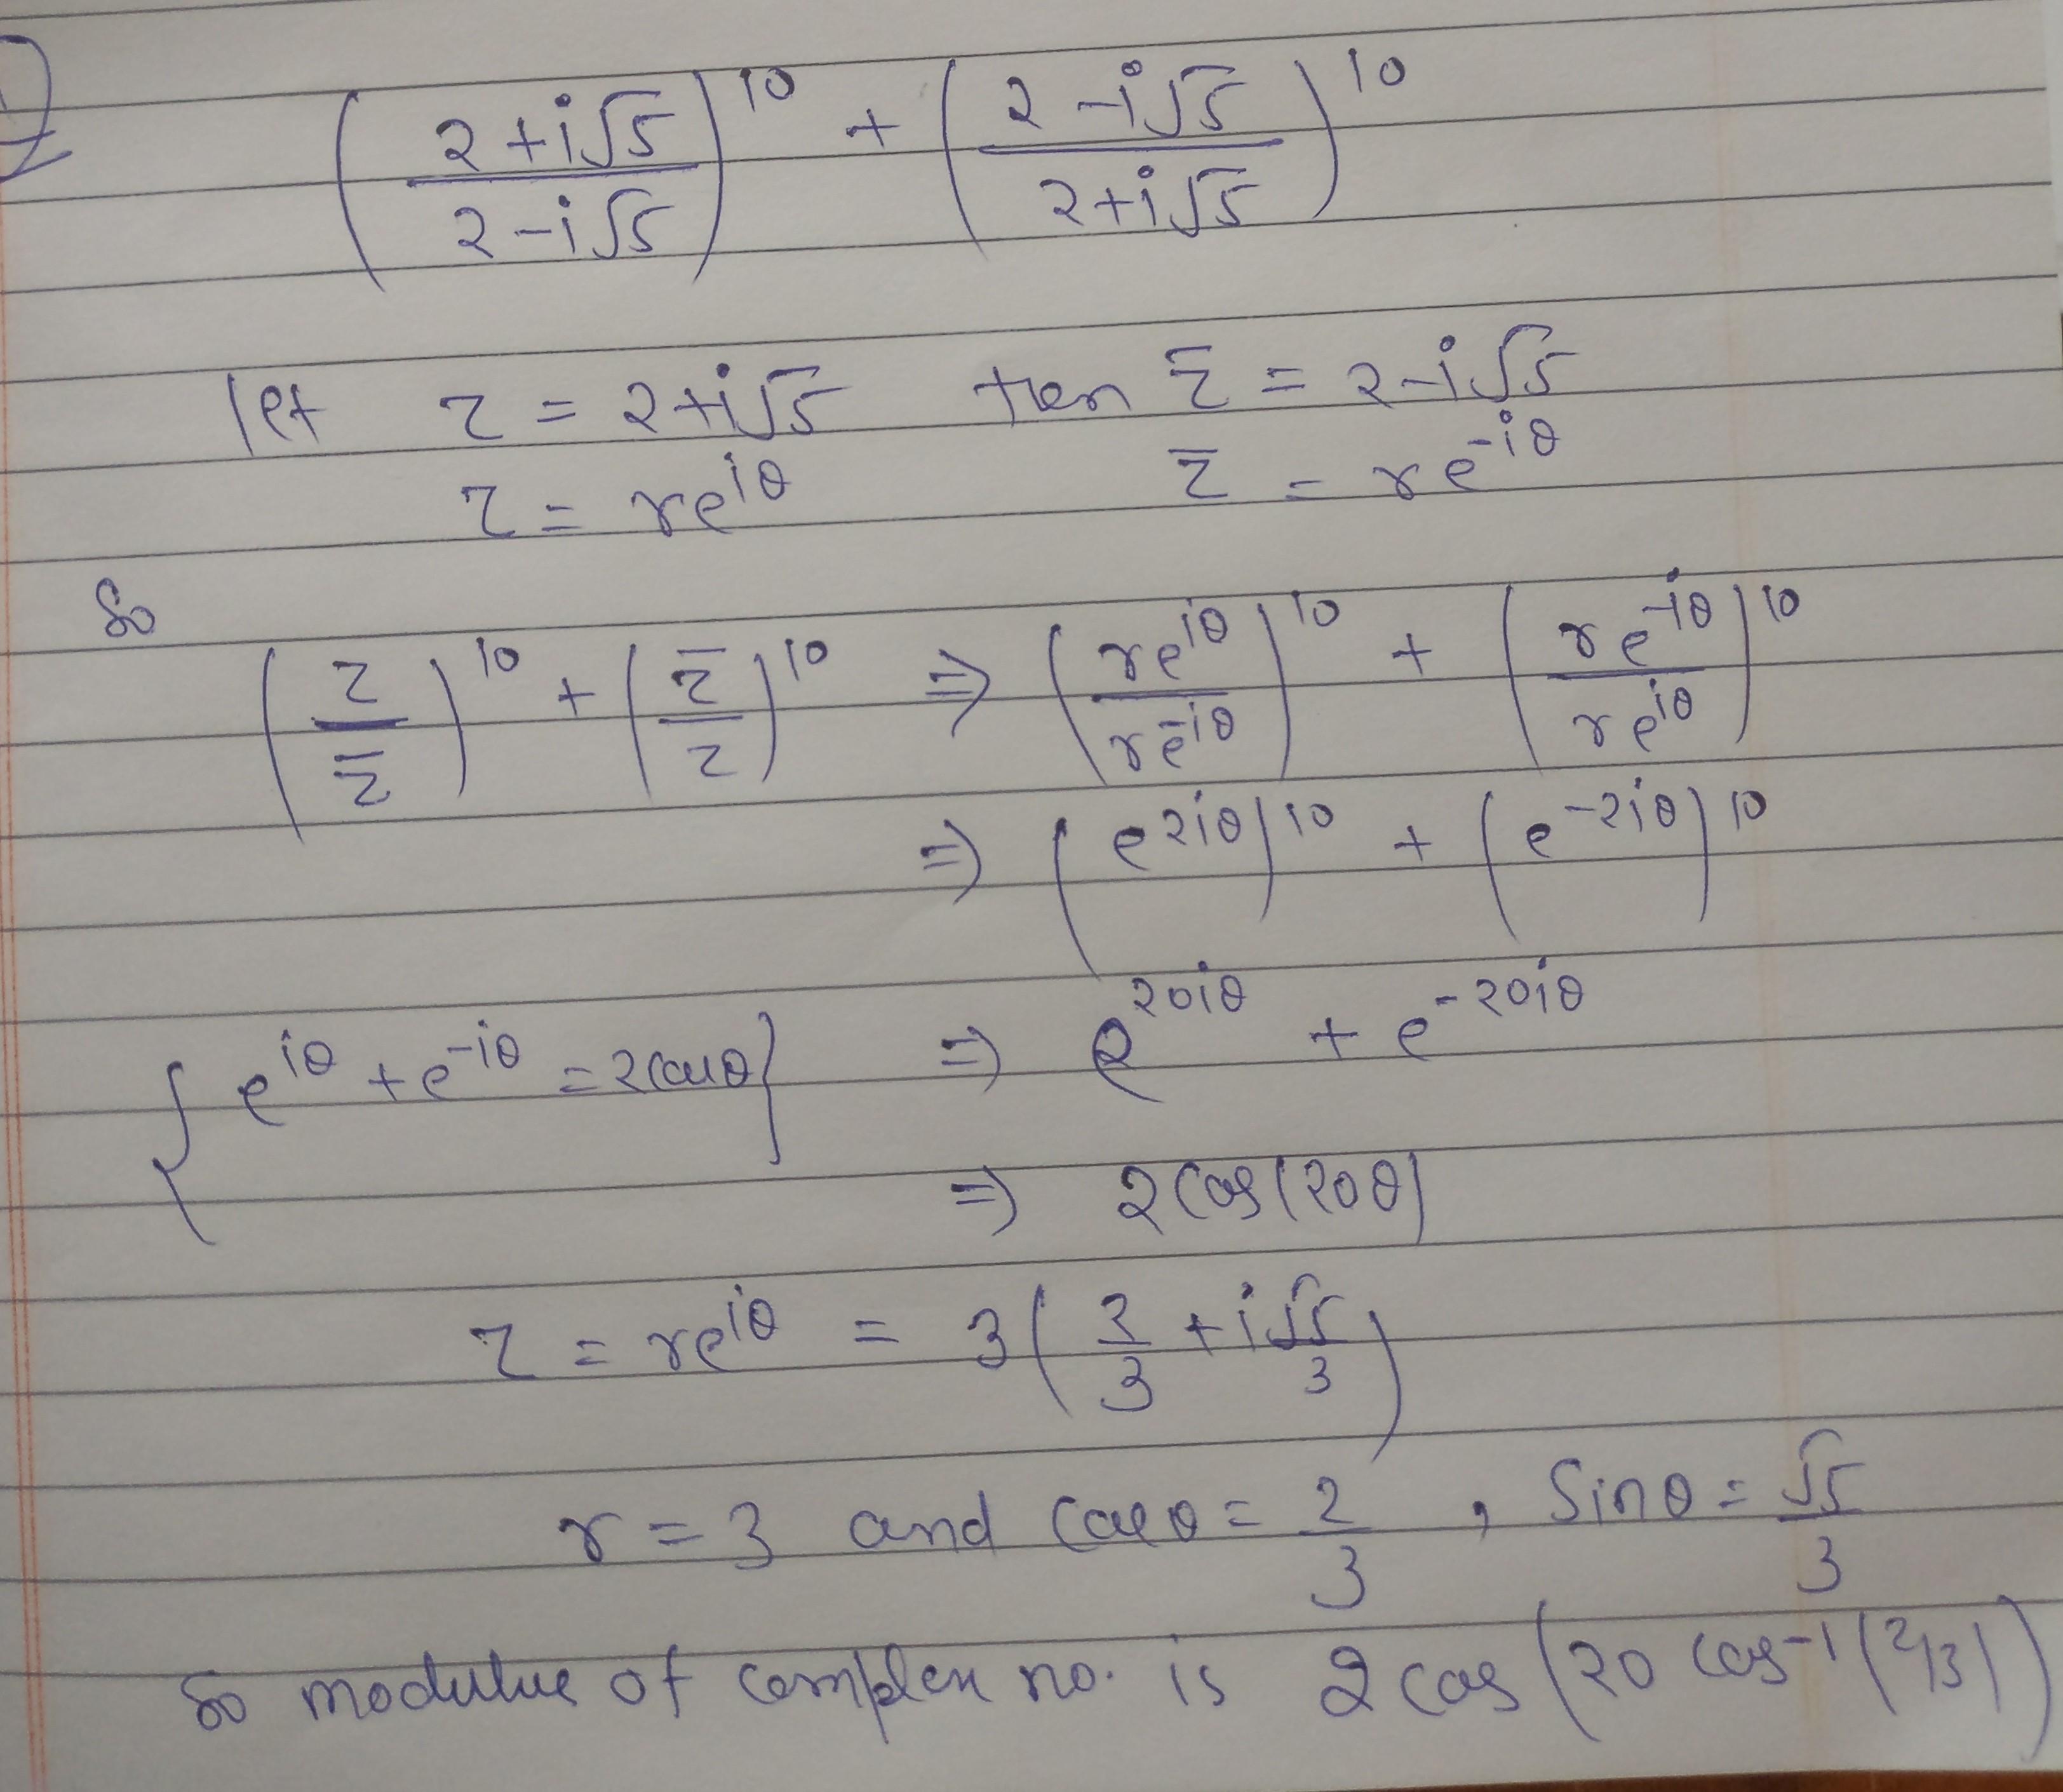 1) (2+i√5 / 2-i√5)^10 + (2-i√5 / 2+i√5)^10
let z = 2+i√5 then z̄ = 2-i√5
z = re^iθ z̄ = re^-iθ
So
(z / z̄)^10 + (z̄ / z)^10 ⇒ (re^iθ / re^-iθ)^10 + (re^-iθ / re^iθ)^10
⇒ (e^2iθ)^10 + (e^-2iθ)^10
{e^iθ + e^-iθ = 2cosθ} ⇒ e^20iθ + e^-20iθ
⇒ 2cos(20θ)
z = re^iθ = 3(2/3 + i√5/3)
r = 3 and cosθ = 2/3 , Sinθ = √5/3
So modulus of complex no. is 2cos(20 cos^-1(2/3))